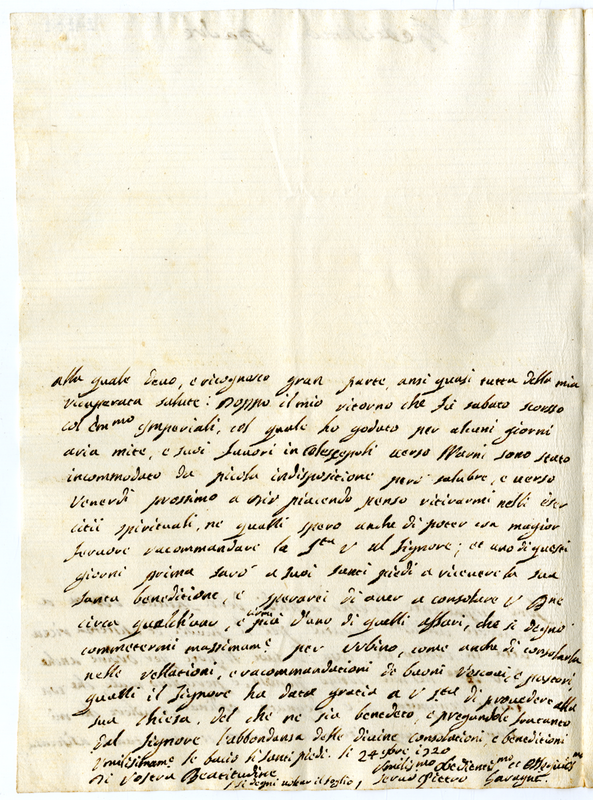 alla quale devo, e ricognosco gran parte, anzi quasi tutta della mia
ricuperata salute: Doppo il mio ritorno che fù sabato scorso
col Em.mo Imperiali, col quale ho goduto per alcuni giorni
aria mite, e suoi favori in verso Narni sono stato
incommodato da picola indispositione però salubre, e verso
Venerdì prossimo a Dio piacendo penso ritirarmi nelli Eser
citii spirituali, ne qualli spero anche di poter con magior
fervore racommandare la S.tà V al Signore; et uno di questi
giorni prima sarò a suoi santi piedi a ricevere la sua
santa beneditione, e sperarei di aver a consolare V Bne
circa e più d'uno di quelli affari, che si degnò
commetermi massimame per Urbino, come anche di consolarla
nelle rellationi, e racommandationi de buoni Vescovi, e pastori,
qualli il Signore ha data gratia a V stà di provedere alla
sua Chiesa. del che ne sia benedeto, e pregandole fratanto
dal Signore l'abbondanza delle divine consolationi, e beneditioni
Vmilissimame le bacio li santi piedi. li 24 9bre 1720
Di Vostra Beatitudine
Si degni voltar il foglio,
Vmiliss.mo Obedientiss.mo et
Servo Pietro